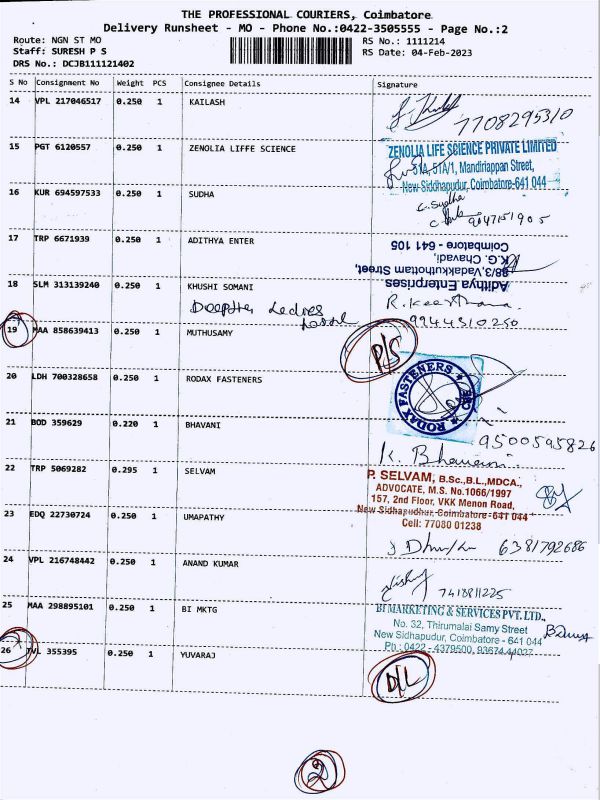 THE PROFESSIONAL COURIERS, Coimbatore
Delivery Runsheet - MO - Phone No.:0422-3505555 - Page No.:2
Route: NGN ST MO
Staff: SURESH P S
DRS No.: DCJB111121402
RS No.: 1111214
RS Date: 04-Feb-2023
S No Consignment No Weight PCS Consignee Details Signature
14 VPL 217046517 0.250 1 KAILASH
7708295310
15 PGT 6120557 0.250 1 ZENOLIA LIFFE SCIENCE
ZENOLIA LIFE SCIENCE PRIVATE LIMITED
51A, 51A/1, Mandiriappan Street,
New Siddhapudur, Coimbatore-641 044
16 KUR 694597533 0.250 1 SUDHA
C. Sudha
9047151905
17 TRP 6671939 0.250 1 ADITHYA ENTER
Adithya Enterprises
88/3, Vadakkuthottam Street,
K.G. Chavadi,
Coimbatore - 641 105
18 SLM 313139240 0.250 1 KHUSHI SOMANI
Ladies Hostel
R. Keerthana
9944310250
19 MAA 858639413 0.250 1 MUTHUSAMY
P/S
20 LDH 700328658 0.250 1 RODAX FASTENERS
RODAX FASTENERS
CBE
21 BOD 359629 0.220 1 BHAVANI
9500595826
K. Bhavani
22 TRP 5069282 0.295 1 SELVAM
P. SELVAM, B.Sc.,B.L.,MDCA.,
ADVOCATE, M.S. No.1066/1997
157, 2nd Floor, VKK Menon Road,
New Sidhapudhur, Coimbatore - 641 044
Cell: 77080 01238
23 EDQ 22730724 0.250 1 UMAPATHY
6381792686
24 VPL 216748442 0.250 1 ANAND KUMAR
7418811225
25 MAA 298895101 0.250 1 BI MKTG
BI MARKETING & SERVICES PVT. LTD.,
No. 32, Thirumalai Samy Street
New Sidhapudur, Coimbatore - 641 044
Ph : 0422 - 4379500, 93674 44027
26 TVL 355395 0.250 1 YUVARAJ
D/L
2